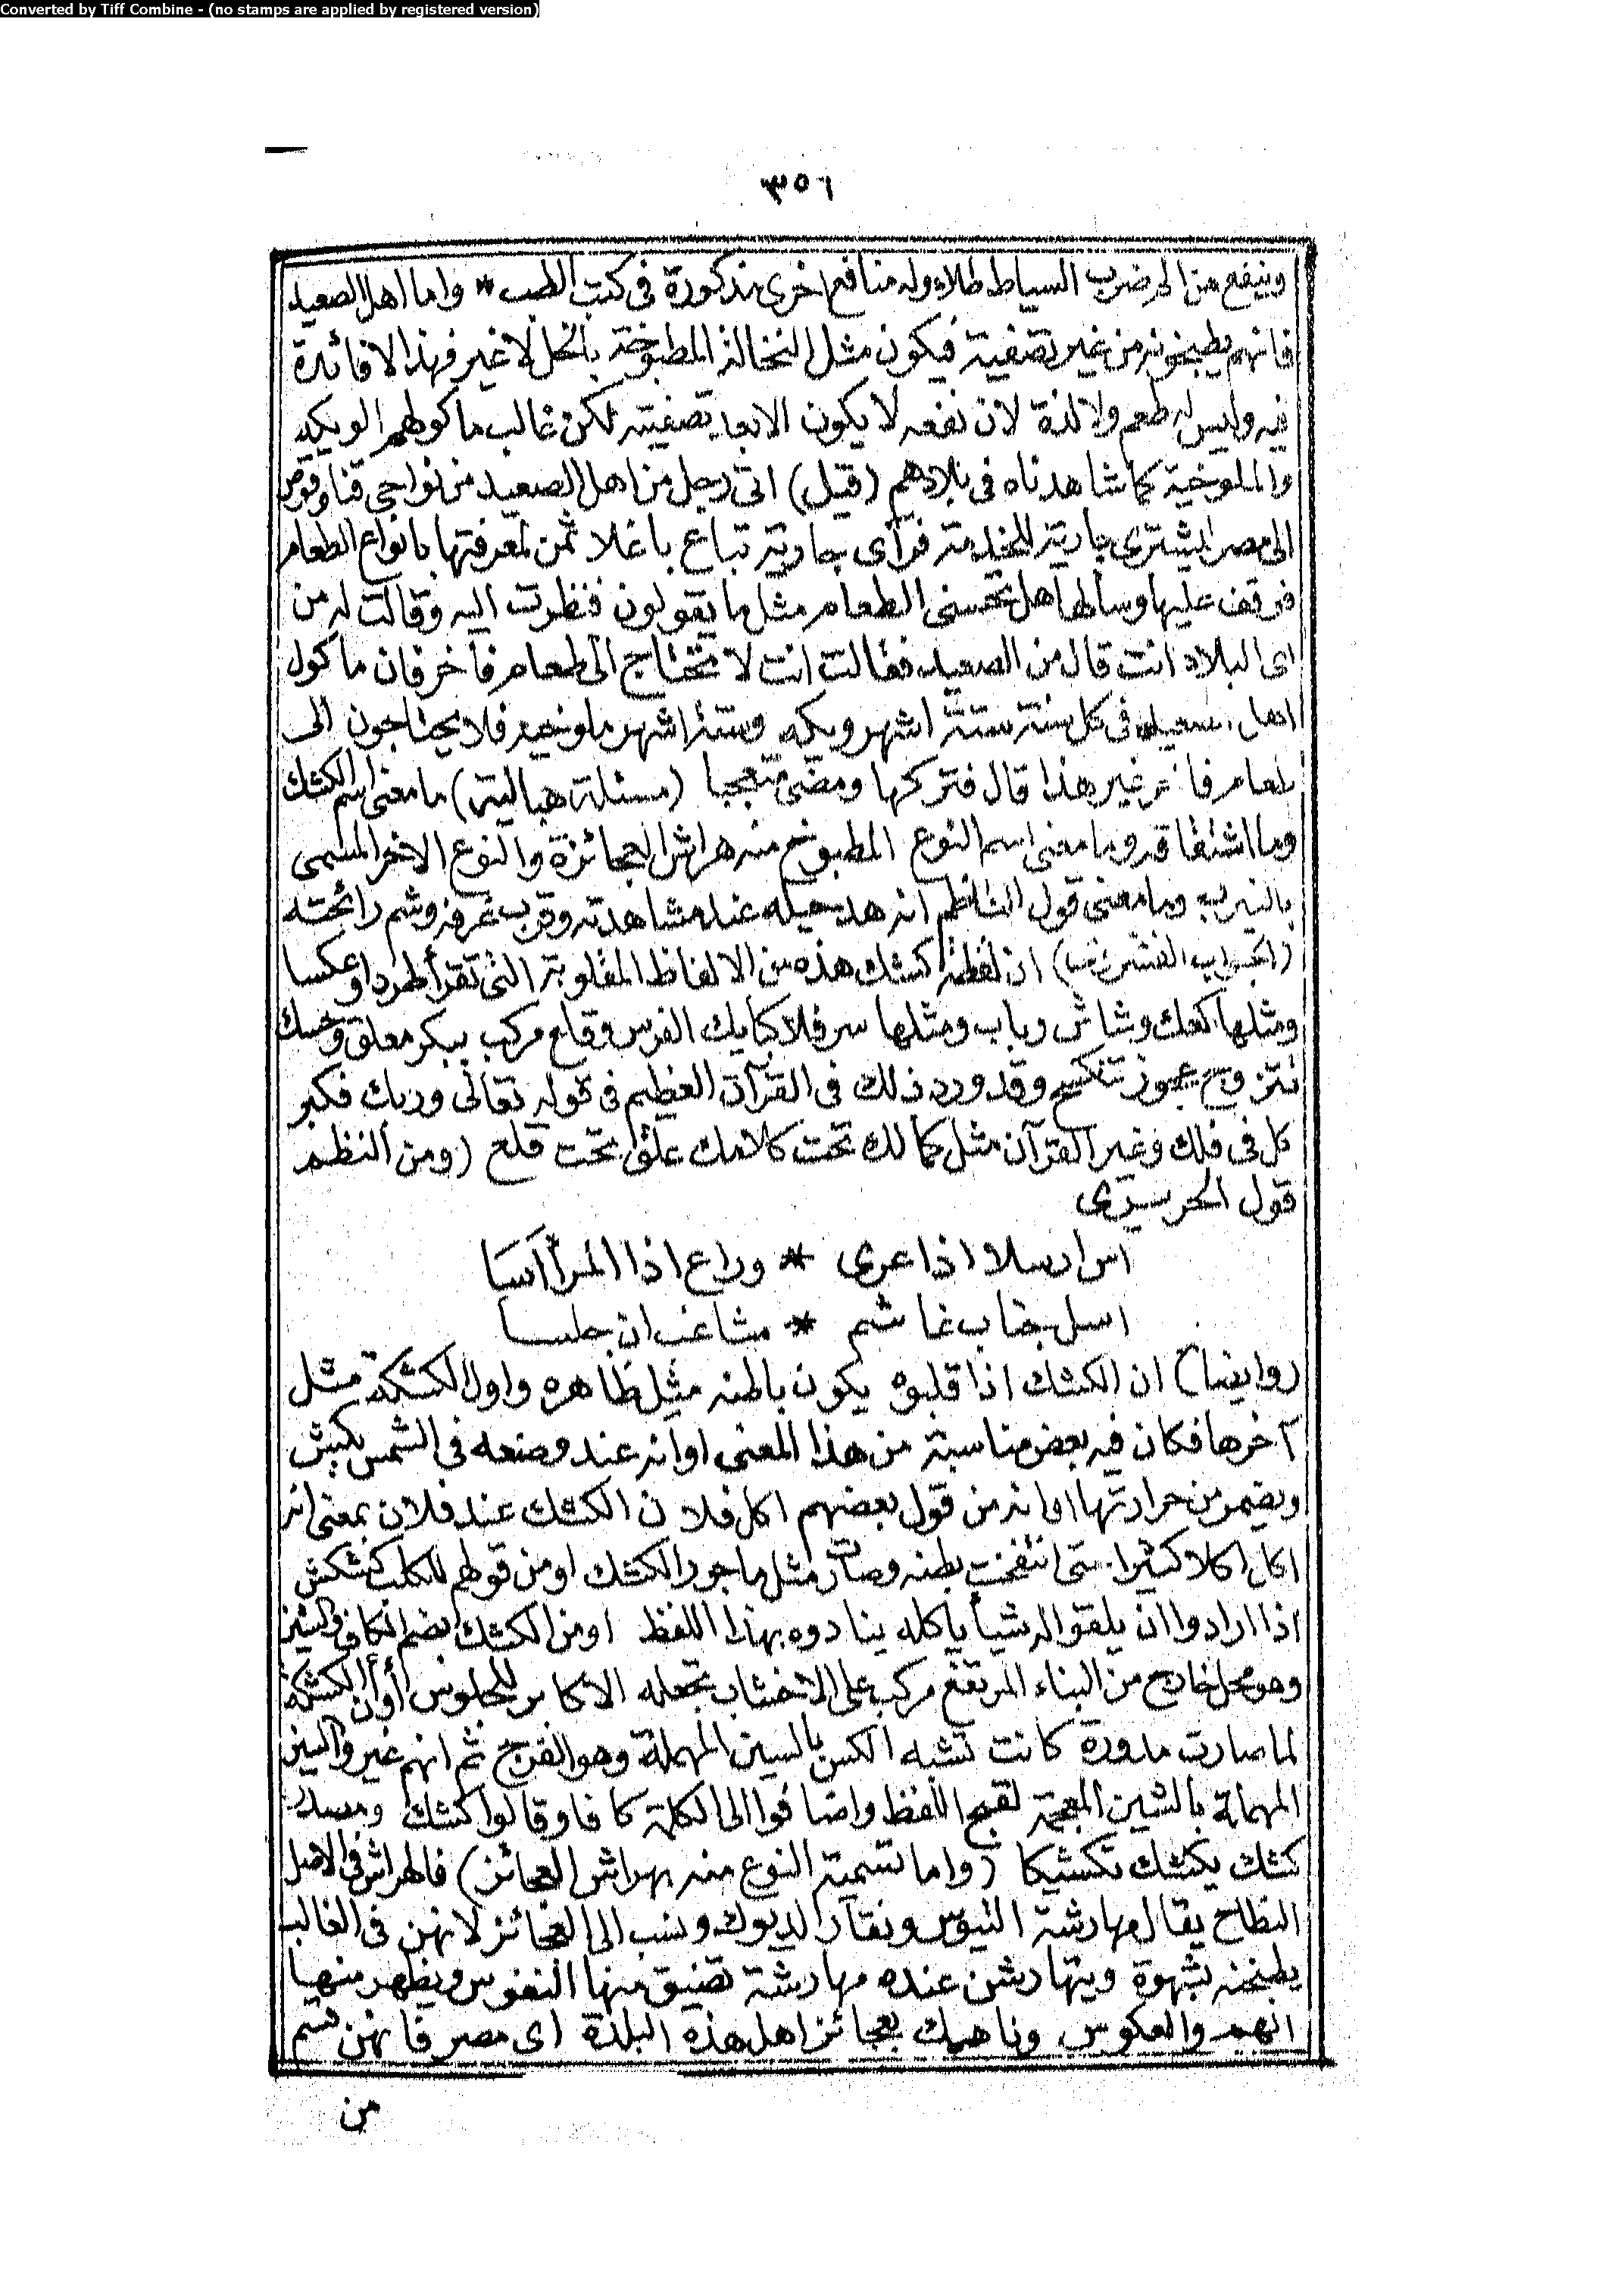 Converted by Tiff Combine - (no stamps are applied by registered version)
٣٥٦
وينفع من الم ضرب السياط طلاء وله منافع اخرى مذكورة فى كتب الطب * واما اهل الصعيد
فانهم يطبخونه من غير تصفية فيكون مثل النخالة المطبوخة بالخل لا غير فهذا لا فائدة
فيه وليس له طعم ولا لذة لان نفعه لا يكون الا بعد تصفيته لكن غالب ماكولهم الويكه
والملوخية كما شاهدناه فى بلادهم (قيل) اتى رجل من اهل الصعيد من نواحى قنا وقوص
الى مصر ليشترى جارية للخدمة فرآى جارية تباع باغلا ثمن لمعرفتها بانواع الطعام
فوقف عليها وسألها هل تحسنى الطعام مثل ما يقولون فنظرت اليه وقالت له من
اى البلاد انت قال من الصعيد فقالت انت لا تحتاج الى طعام فاخر فان ماكول
اهل الصعيد فى كل سنة ستة اشهر ويكه وستة اشهر ملوخيه فلا يحتاجون الى
طعام فاخر غير هذا قال فتركها ومضى متعجبا (مسئلة هبالية) ما معنى اسم الكشك
وما اشتقاقه وما معنى اسم النوع المطبوخ منه هراش العجائزة والنوع الاخر المسمى
بالنيرب وما معنى قول الناظم انه هد حيله عند مشاهدته وقرب غرفه وشم رائحته
(الجواب الفشروى) ان لفظة كشك هذه من الالفاظ المقلوبة التى تقرأ طردا وعكسا
ومثلها كعك وشاش وباب ومثلها سر فلا كبا بك الفرس وقلع مركب ببكر معلق وخسك
نتزوج عجوز تنكسح وقد ورد ذلك فى القرآن العظيم فى قوله تعالى وربك فكبر
كل فى فلك وغير القرآن مثل كمالك تحت كلامك علق تحت قلع (ومن النظم
قول الحريرى
اس ارملا اذا عرى * وراع اذا المرأ اسا
اسل جناب غاشم * مشاغب ان جلسا
(وايضا) ان الكشك اذا قلبوه يكون باطنه مثل ظاهره واول الكشكة مثل
آخرها فكان فيه بعض مناسبة من هذا المعنى او انه عند وضعه فى الشمس يكبش
ويضمر من حرارتها او انه من قول بعضهم اكل فلان الكشك عند فلان بمعنى انه
اكل اكلا كثيرا حتى انتفخت بطنه وصارت مثل ماجور الكشك او من قولهم للكلب كشكش
اذا ارادوا ان يلقوا له شيأ يأكله ينادوه بهذا اللفظ او من الكشك بضم الكاف والشين
وهو محل خارج من البناء المرتفع مركب على الاخشاب تجعله الاكابر للجلوس او ان الكشكة
لما صارت مدورة كانت تشبه الكس بالسين المهملة وهو الفرج ثم انهم غيروا السين
المهملة بالشين المعجمة لقبح اللفظ واضافوا الى الكلمة كافا وقالوا كشك ومصدره
كشك يكشك تكشيكا (واما تسمية النوع منه بهراش العجائز) فالهراش فى الاصل
النطاح يقال مهارشة التيوس ونقار الديوك ونسب الى العجائز لانهن فى الغالب
يطبخنه بشهوة ويتهارشن عنده مهارشة تضيق منها النفوس ويظهر منها
الهم والعكوس وناهيك بعجائز اهل هذه البلدة اى مصر فانهن قسم
من